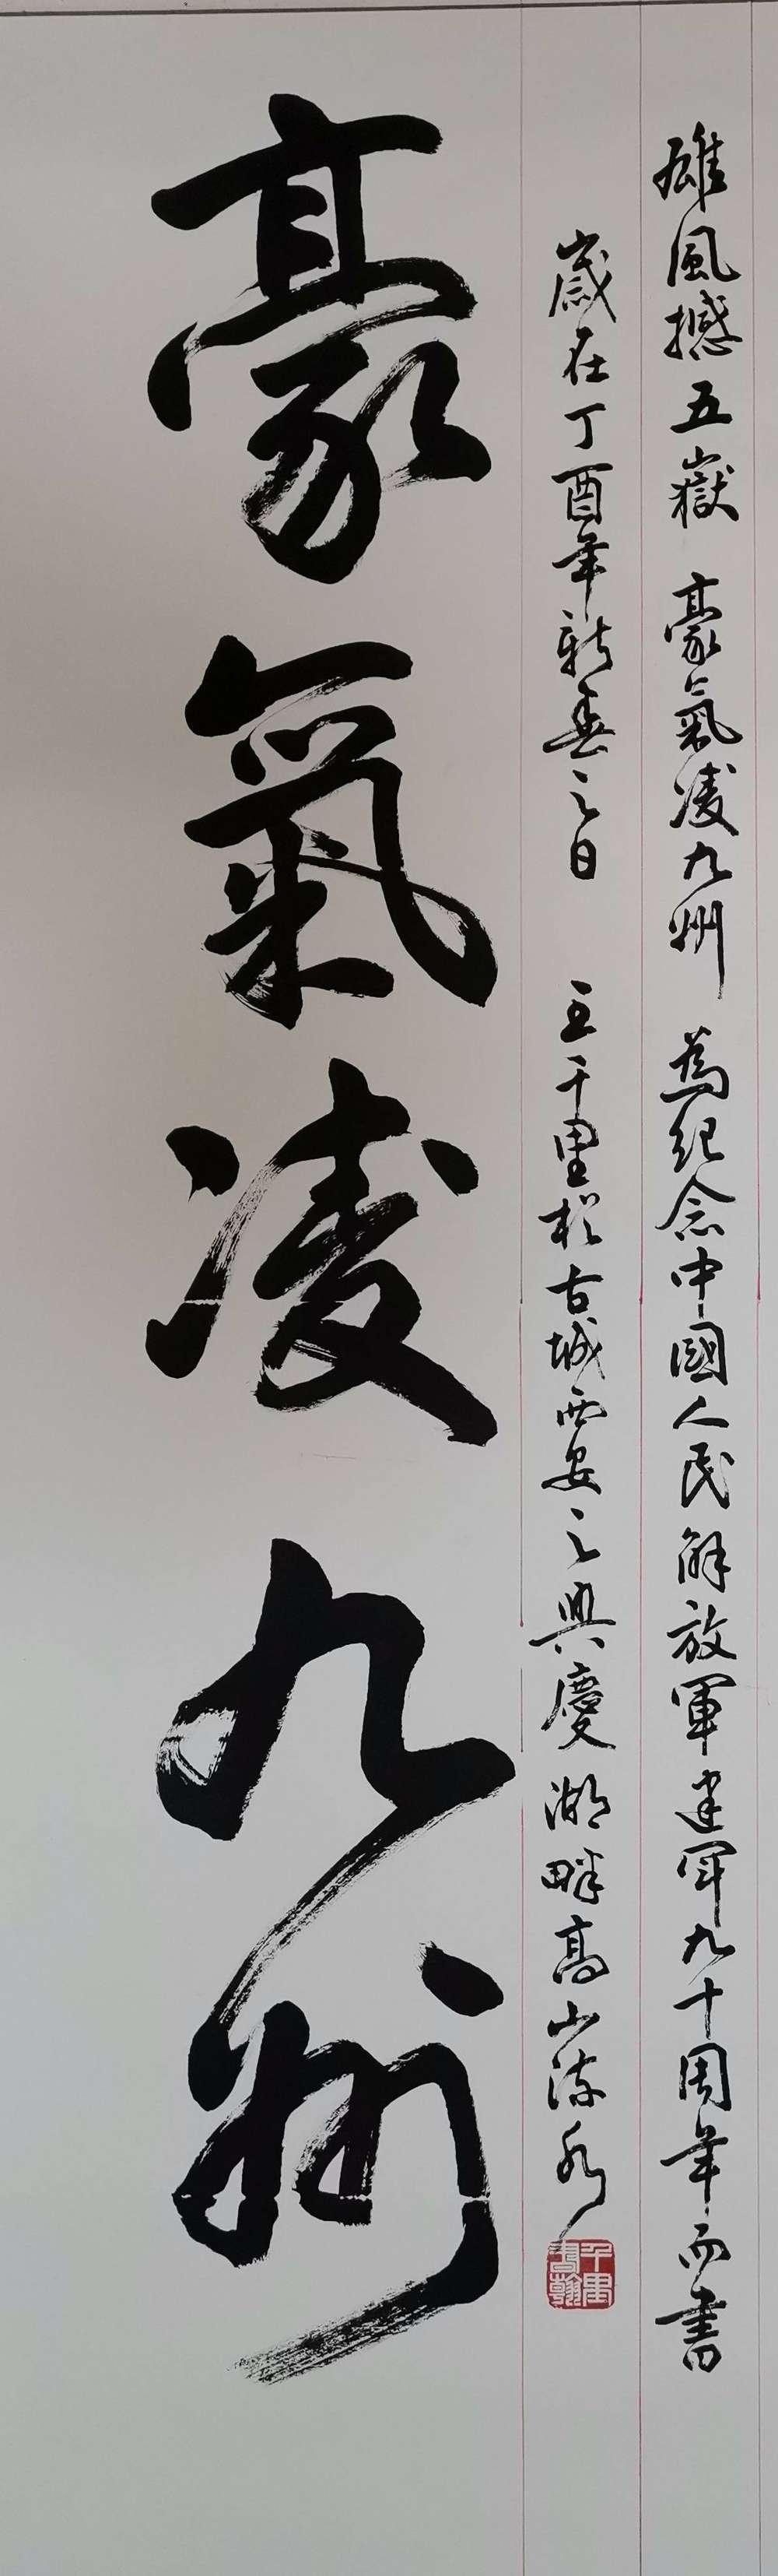 雄風撼五嶽 豪氣凌九州 為紀念中國人民解放軍建軍九十周年而書
歲在丁酉年新春之日 王千里於古城西安之興慶湖畔高山流水
千里
書翰
豪氣凌九州